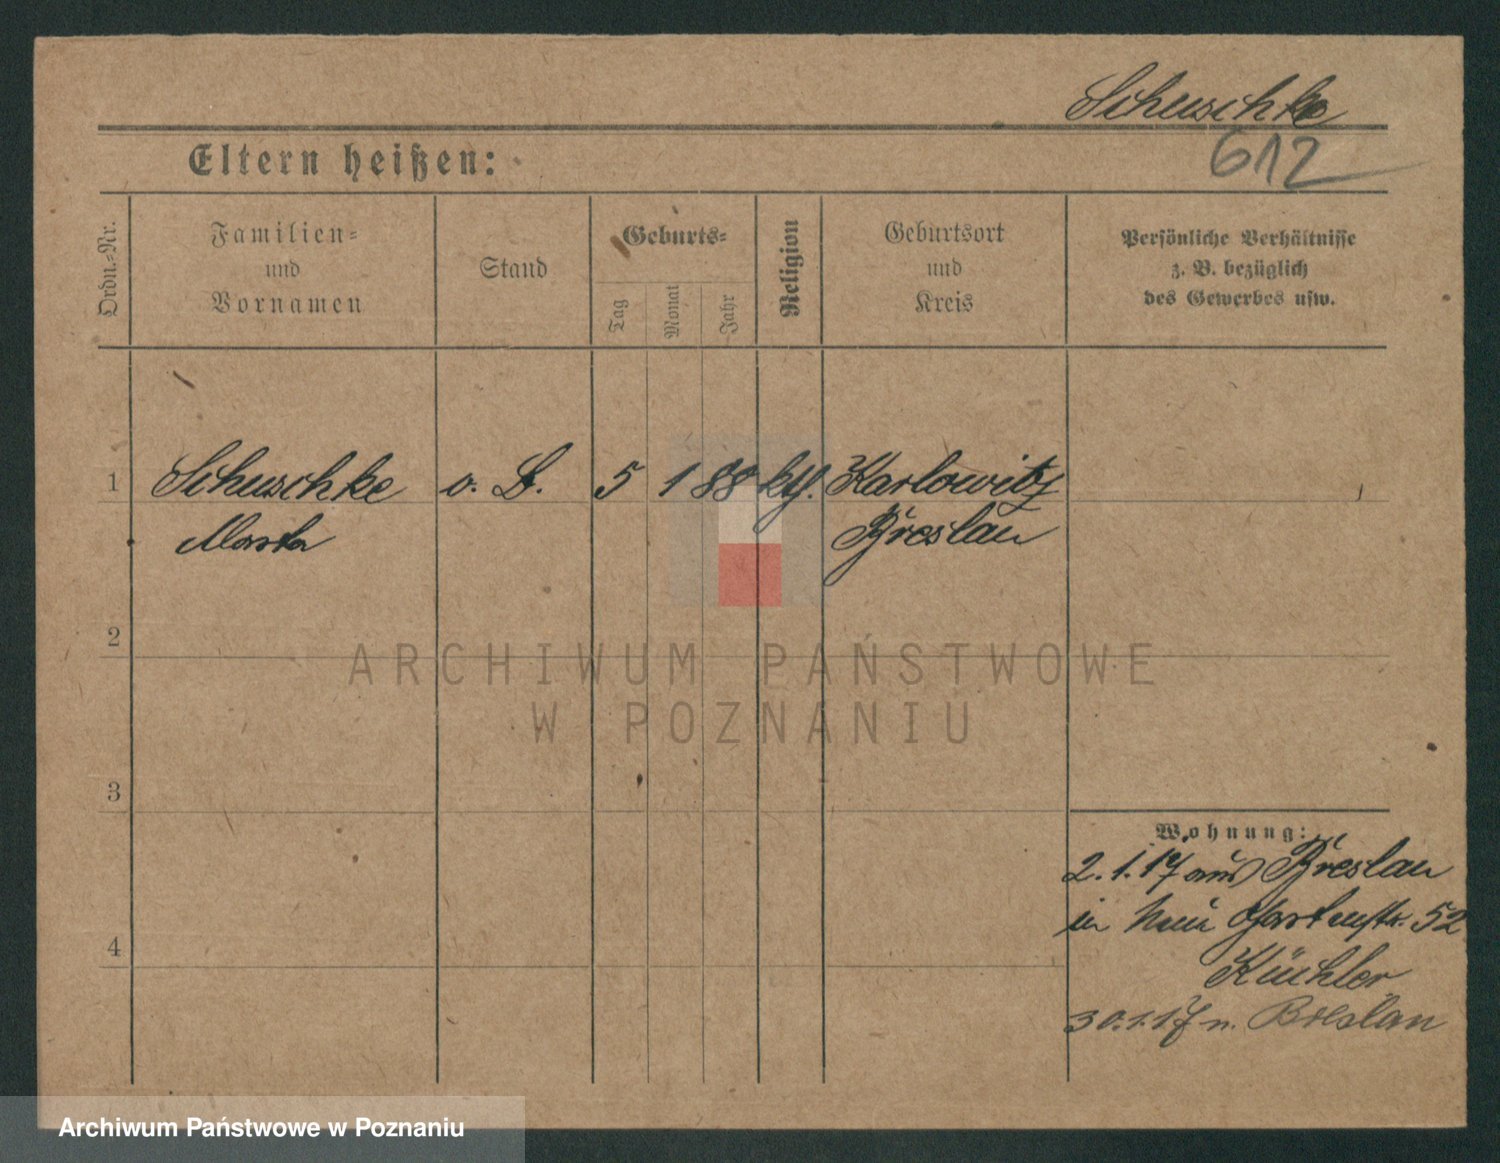 Schuschke
612
Eltern heißen:
Ordn.-Nr.
Familien-
und
Vornamen
Stand
Geburts-
Tag
Monat
Jahr
Religion
Geburtsort
und
Kreis
Persönliche Verhältnisse
z. B. bezüglich
des Gewerbes usw.
1 Schuschke o. B. 5 1 88 kth. Karlowitz
Marta Breslau
2
ARCHIWUM PAŃSTWOWE
W POZNANIU
3
4
Wohnung:
2.1.17 aus Breslau
in Gartenstr. 52
Küchler
30.1.17 n. Breslau
Archiwum Państwowe w Poznaniu